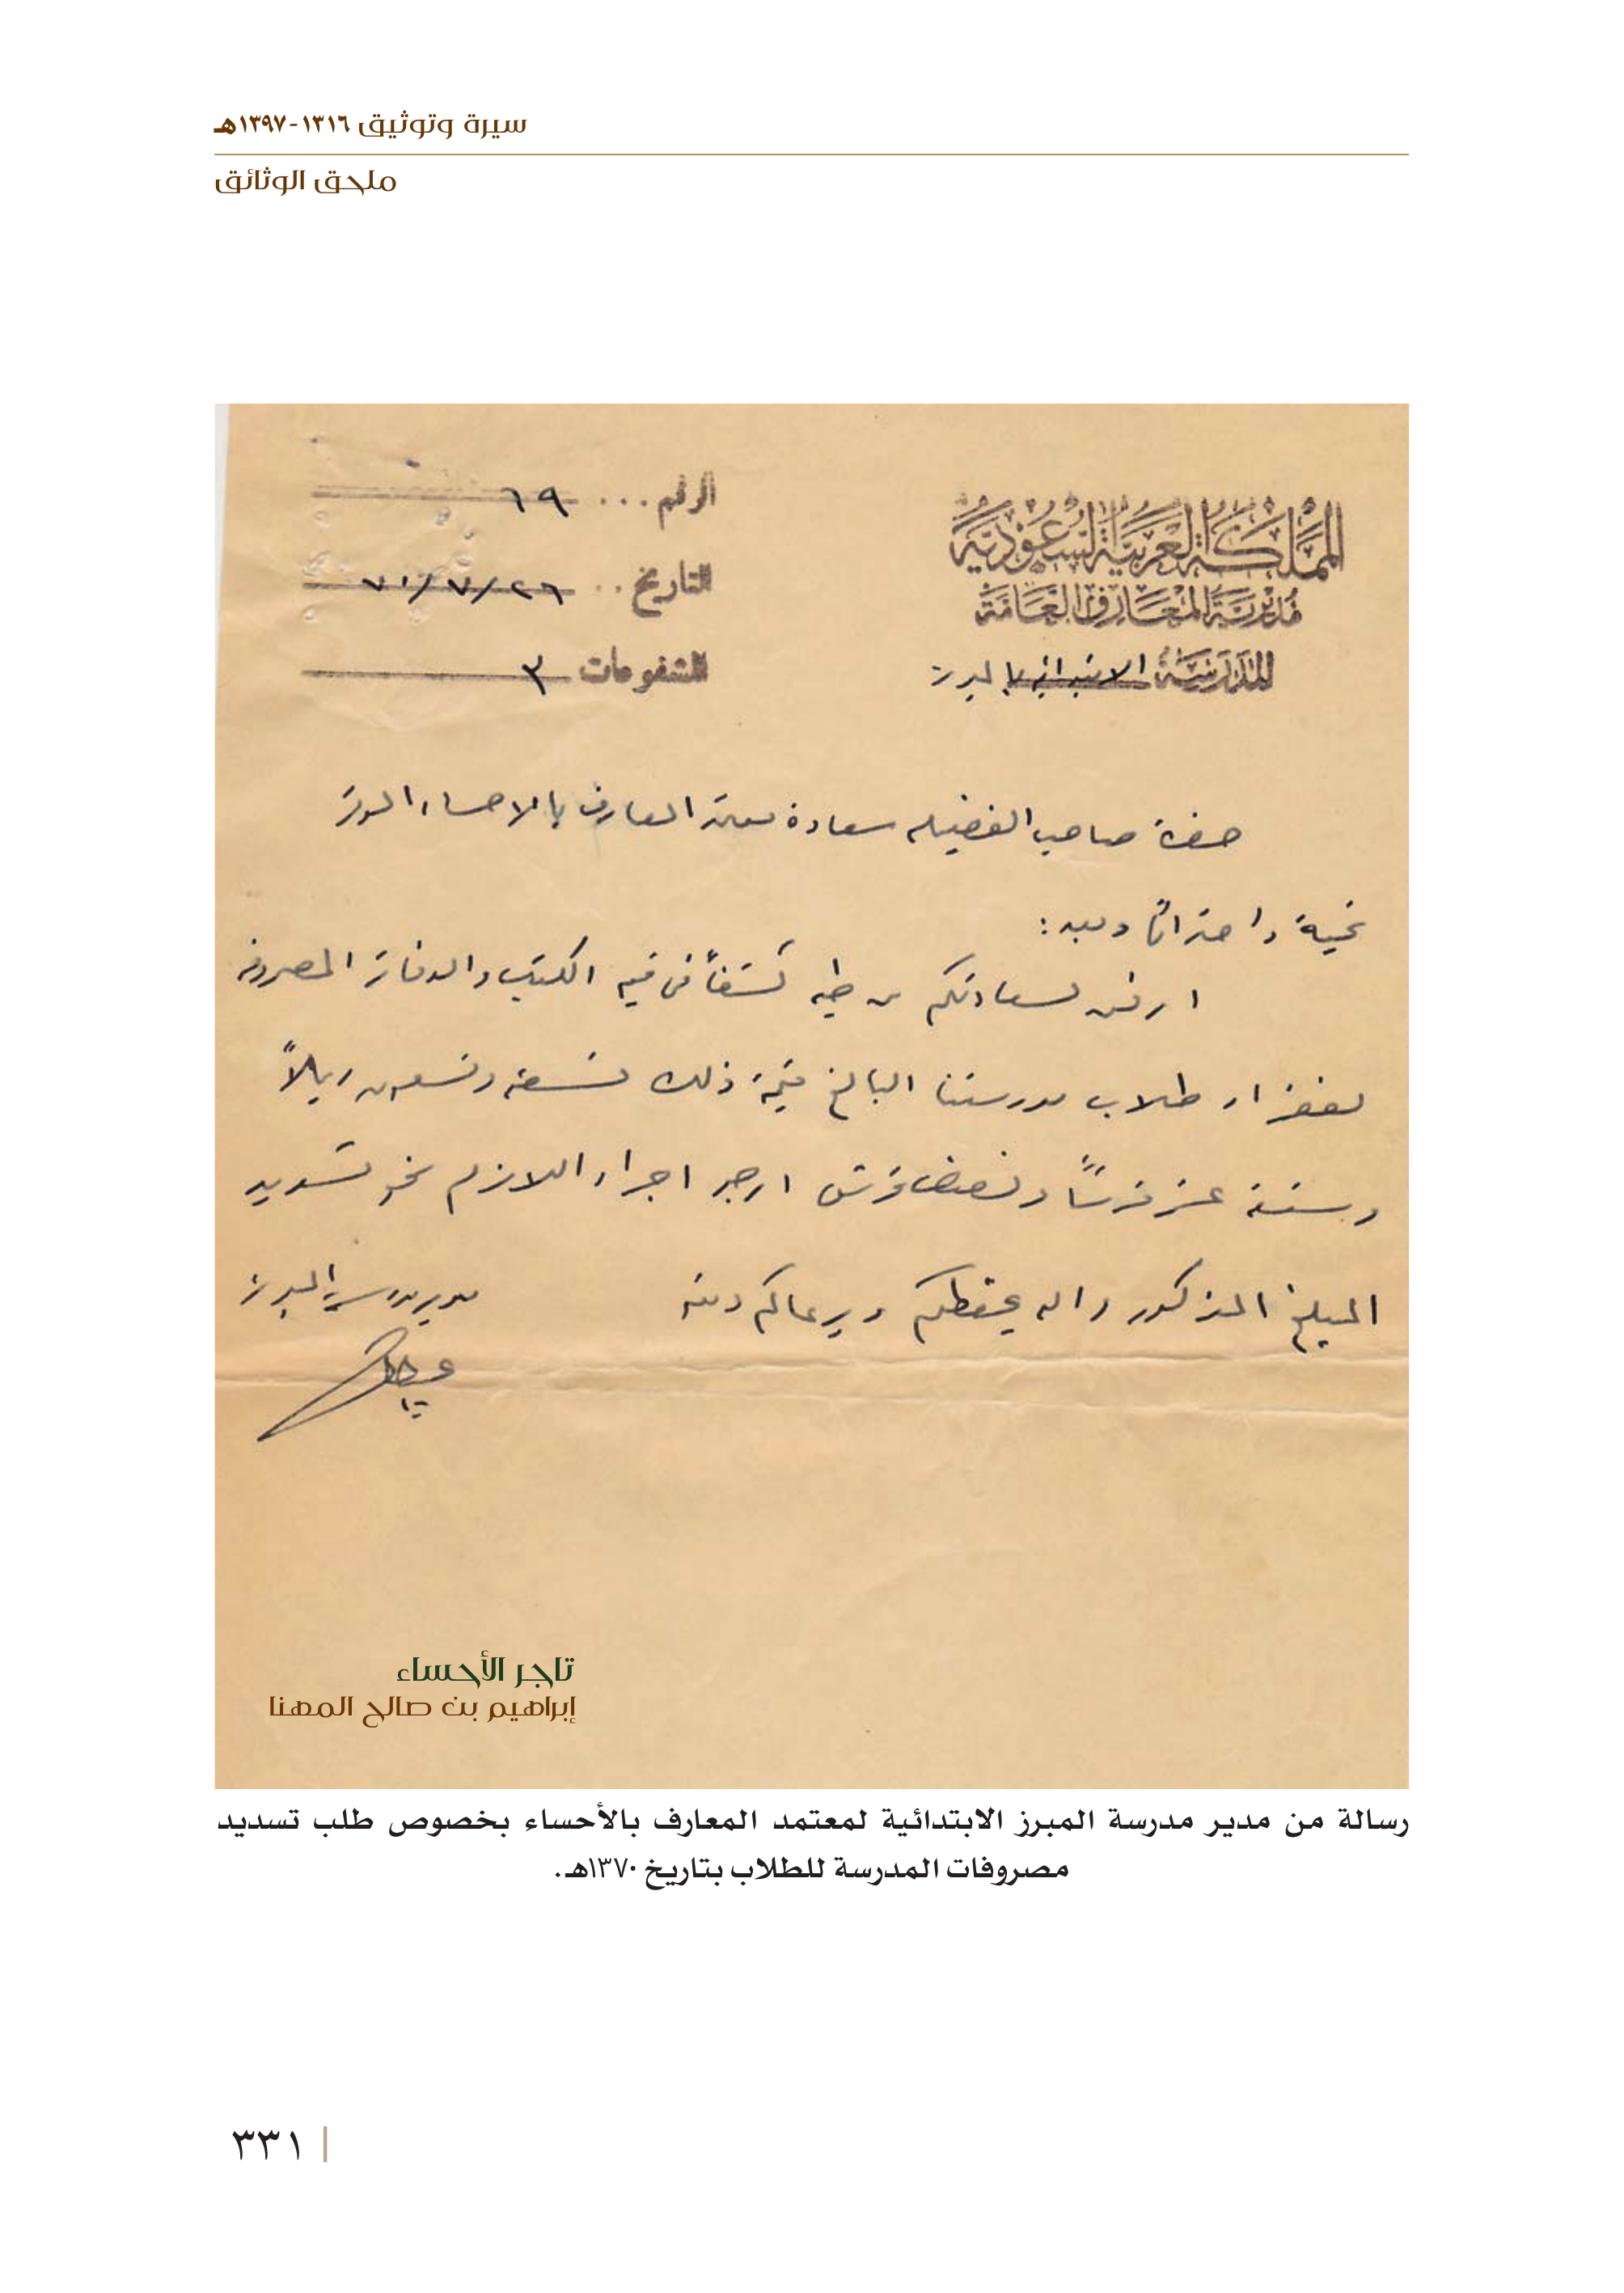 سيرة وتوثيق ١٣١٦-١٣٩٧هـ
ملحق الوثائق
المملكة العربية السعودية
مديرية المعارف العامة
المدرسة الابتدائيه بالمبرز
الرقم ... ٦٩
التاريخ .. ٢٦/٧/٧٠
المشفوعات ٣
حضرة صاحب الفضيله سعادة معتمد المعارف بالاحساء الموقر
تحية واحتراماً وبعد:
ارفع لسعادتكم من طيه كشفاً في قيم الكتب والدفاتر المصروفه
لفقراء طلاب مدرستنا البالغ قيمة ذلك تسعة وتسعون ريالاً
وستة عشر قرشاً ونصف قرش ارجو اجراء اللازم نحو تسديد
المبلغ المذكور والله يحفظكم ويرعاكم
مدير مدرسة المبرز
تاجر الأحساء
إبراهيم بن صالح المهنا
رسالة من مدير مدرسة المبرز الابتدائية لمعتمد المعارف بالأحساء بخصوص طلب تسديد
مصروفات المدرسة للطلاب بتاريخ ١٣٧٠هـ.
٣٣١